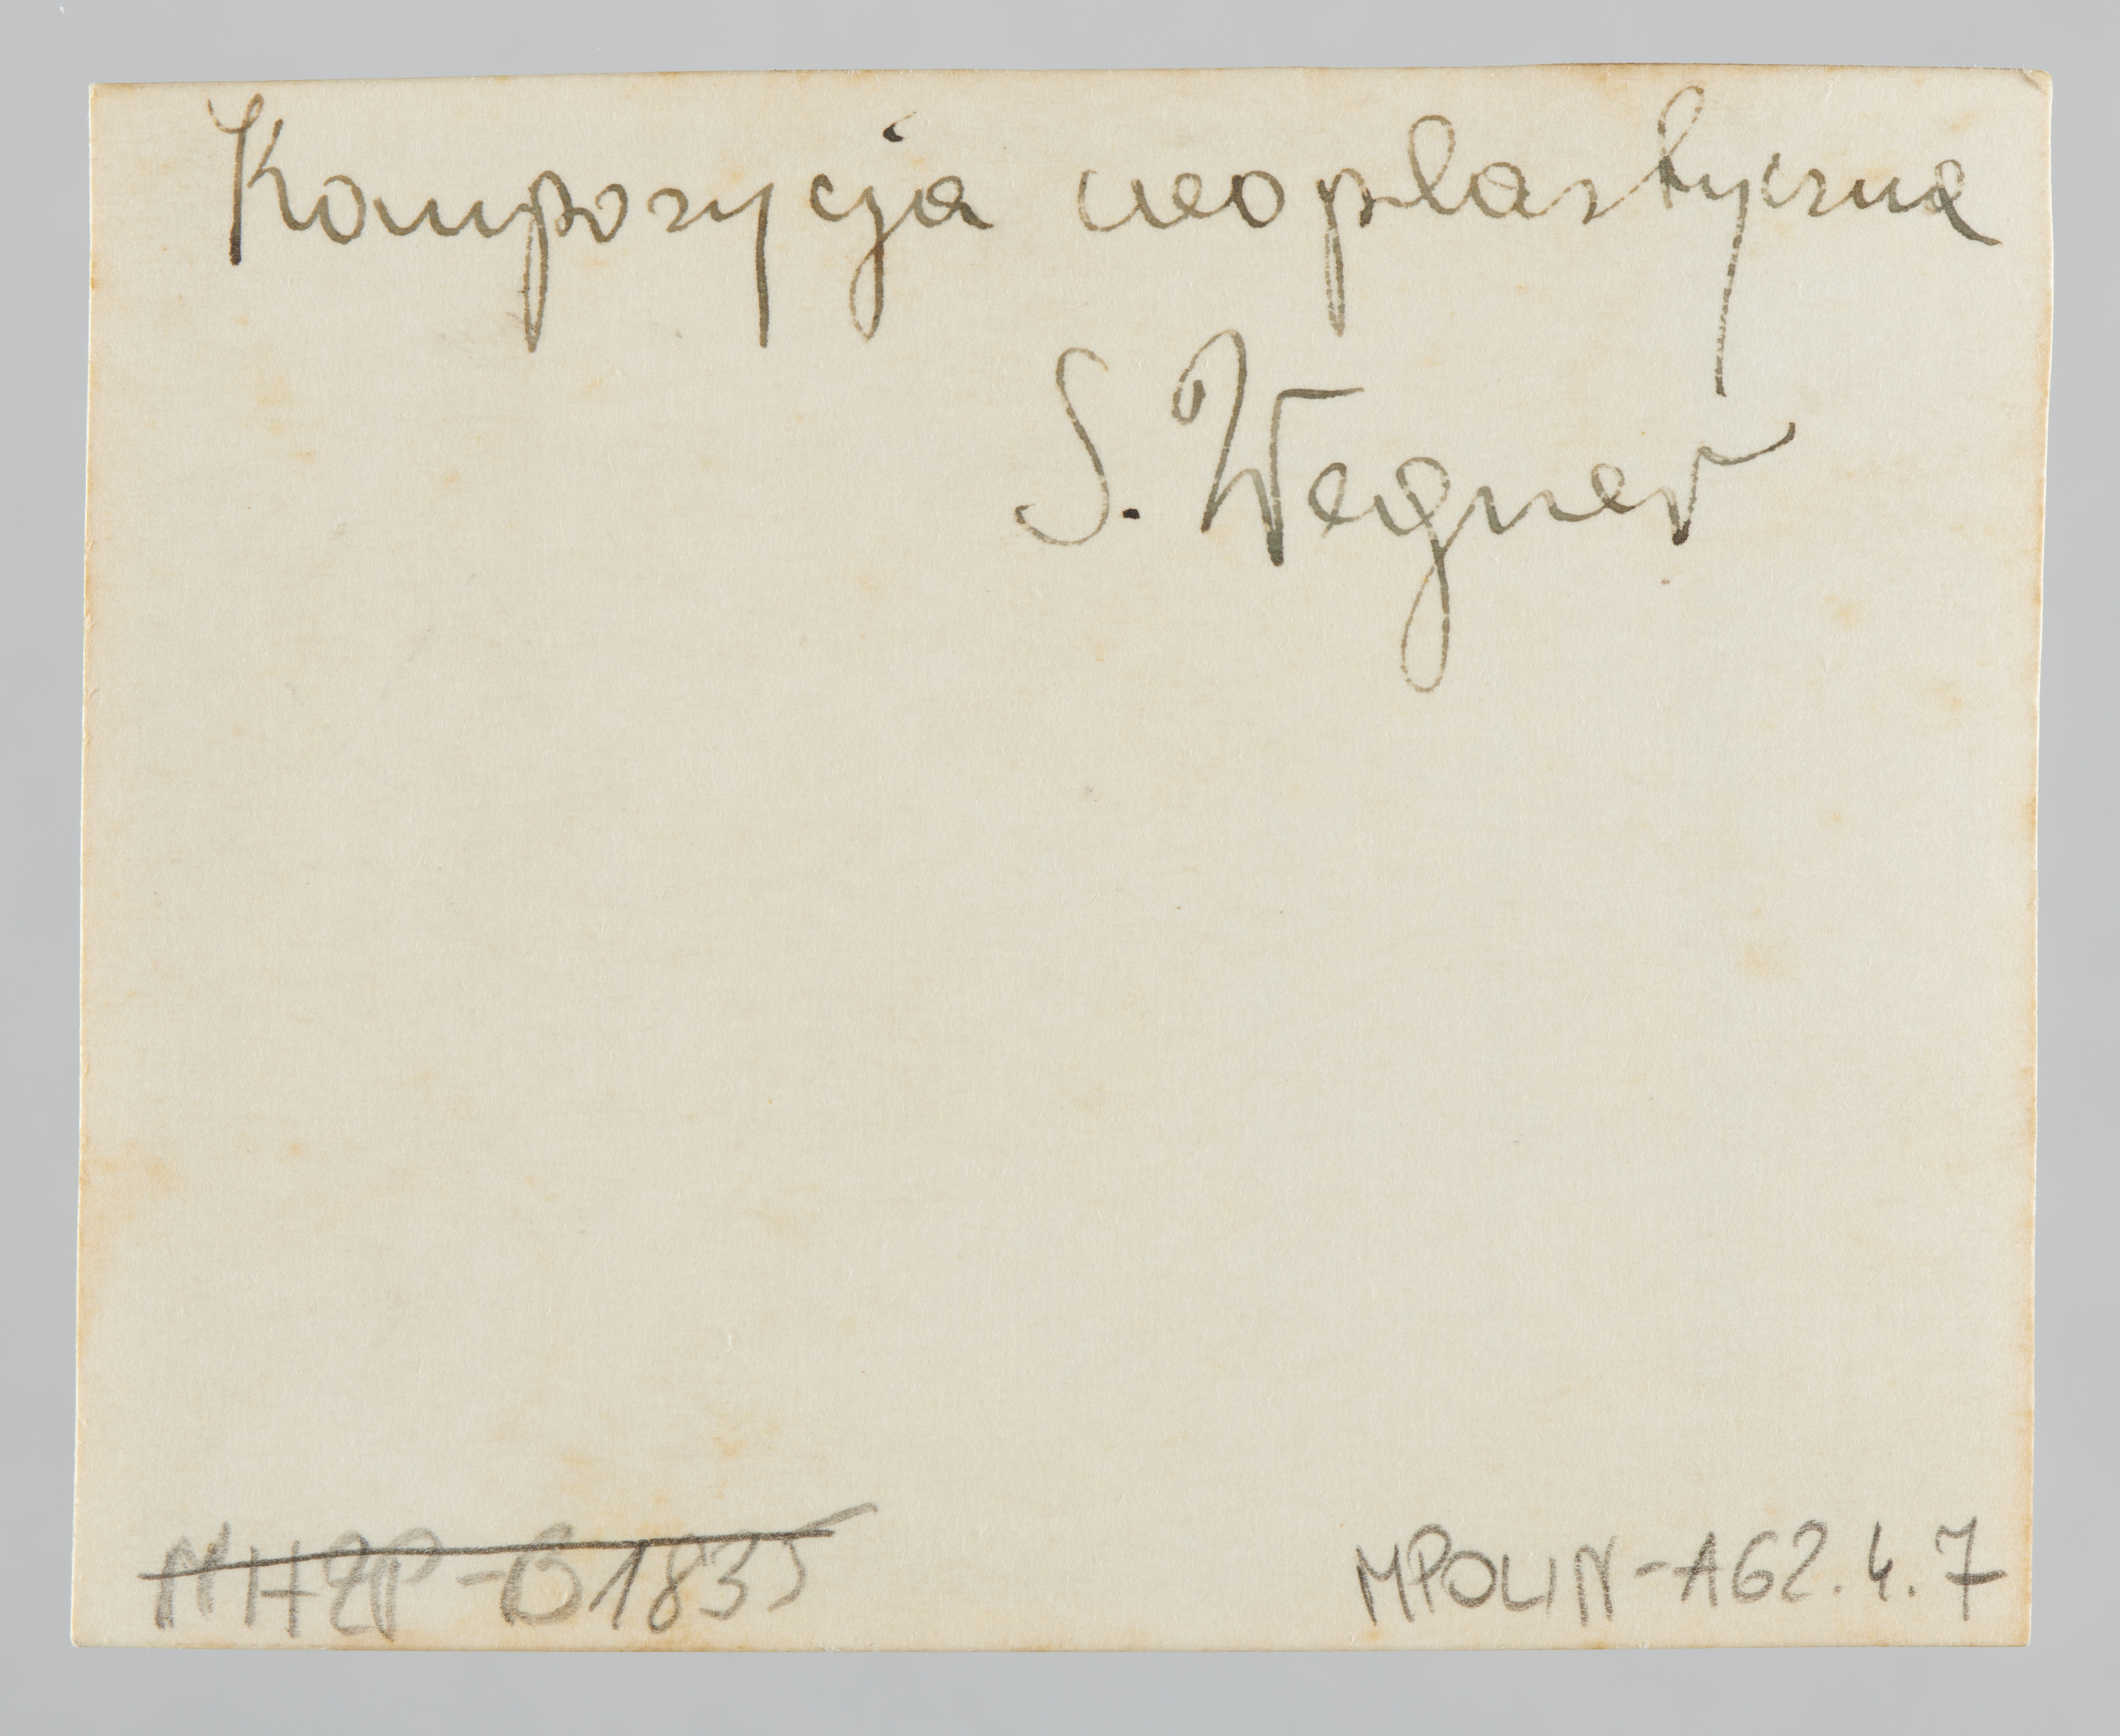 Kompozycja neoplastyczna
S. Wegner
MHŻP-B1835
MPOLIN-A62.4.7